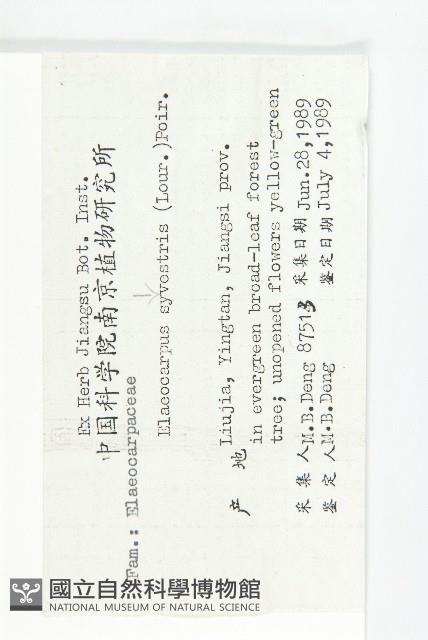 Ex Herb Jiangsu Bot. Inst.
中国科学院南京植物研究所
Fam.: Elaeocarpaceae
Elaeocarpus syvestris (Lour.)Poir.
产地 Liujia, Yingtan, Jiangsi prov.
in evergreen broad-leaf forest
tree; unopened flowers yellow-green
采集人M.B.Deng 87513 采集日期 Jun.28,1989
鉴定人M.B.Deng 鉴定日期 July 4,1989
國立自然科學博物館
NATIONAL MUSEUM OF NATURAL SCIENCE